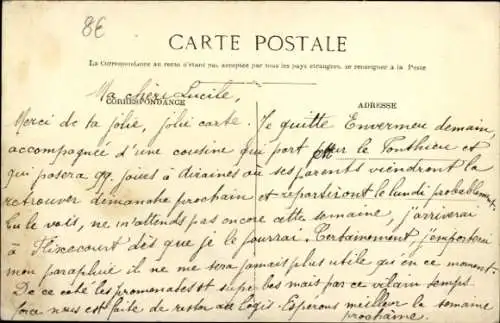 8€
CARTE POSTALE
La Correspondance au recto n'étant pas acceptée par tous les pays étrangers, se renseigner à la Poste
CORRESPONDANCE
ADRESSE
Ma chère Lucile,
Merci de ta jolie, jolie carte. Je quitte Envermeu demain,
accompagnée d'une cousine qui part pour le Ponthieu et
qui posera qq. jours à Airaines où ses parents viendront la
retrouver dimanche prochain et repartiront le lundi probablement.
Tu le vois, ne m'attends pas encore cette semaine, j'arriverai
à Flixecourt dès que je le pourrai. Certainement, j'emporterai
mon parapluie il ne me sera jamais plus utile qu'en ce moment.
De ce côté les promenades et superbes mais par ce vilain temps
force nous est faite de rester au logis. Espérons meilleur la semaine
prochaine.